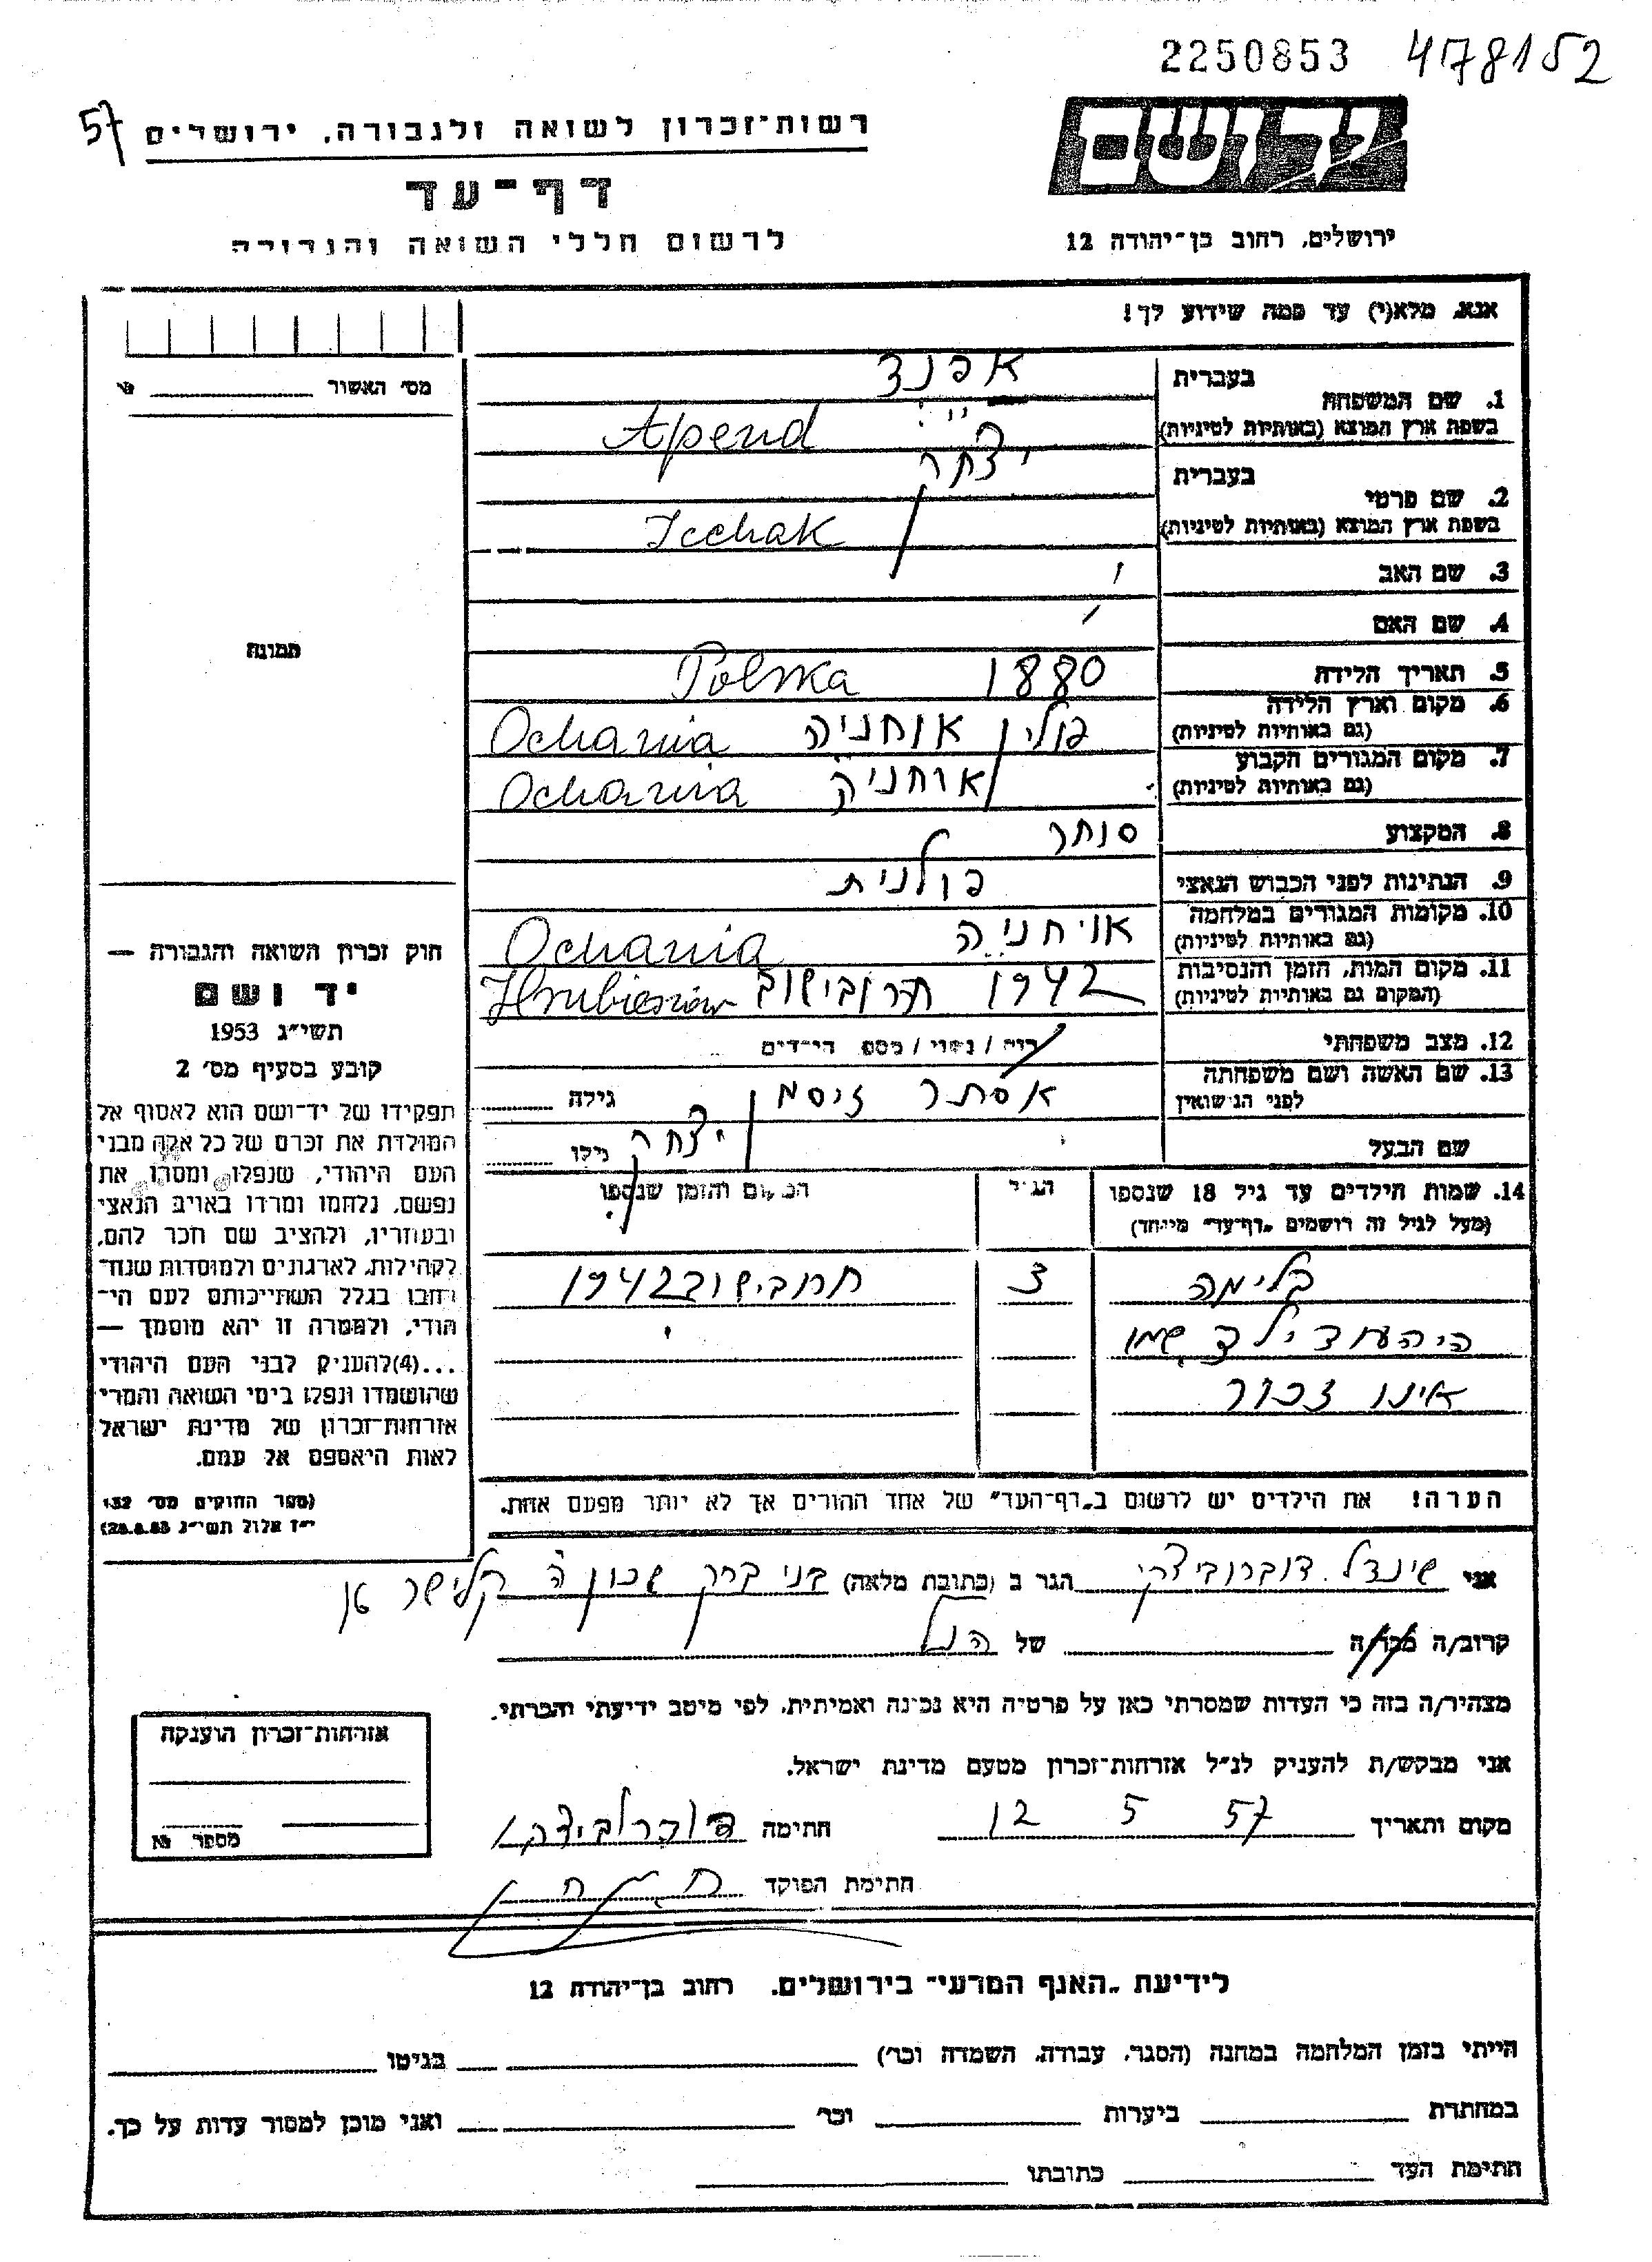 2250853 478152
57
רשות־זכרון לשואה ולגבורה, ירושלים
דף־עד
לרשום חללי השואה והגבורה
יד ושם
ירושלים, רחוב בן־יהודה 12
אנא, מלא(י) עד כמה שידוע לך!
מס׳ האשור
תמונה
1. שם המשפחה בעברית אפנד
בשפת ארץ המוצא (באותיות לטיניות) Apend
2. שם פרטי בעברית יצחק
בשפת ארץ המוצא (באותיות לטיניות) Icchak
3. שם האב
4. שם האם
5. תאריך הלידה 1880 Polska
6. מקום וארץ הלידה (גם באותיות לטיניות) פולין אוחניה Ochania
7. מקום המגורים הקבוע (גם באותיות לטיניות) אוחניה Ochania
8. המקצוע סוחר
9. הנתינות לפני הכבוש הנאצי פולנית
10. מקומות המגורים במלחמה (גם באותיות לטיניות) אויחניה Ochania
11. מקום המות, הזמן והנסיבות (המקום גם באותיות לטיניות) 1942 חרובישוב Hrubieszów
12. מצב משפחתי רוק / נשוי / מספר הילדים
13. שם האשה ושם משפחתה לפני הנישואין אסתר זיסמן גילה
שם הבעל יצחק גילו
14. שמות הילדים עד גיל 18 שנספו הגיל המקום והזמן שנספו
(מעל לגיל זה רושמים „דף־עד״ מיוחד)
בלימה 3 חרובישוב 1942
היה עוד ילד שמו
אינו זכור
הערה! את הילדים יש לרשום ב„דף־העד״ של אחד ההורים אך לא יותר מפעם אחת.
חוק זכרון השואה והגבורה —
יד ושם
תשי״ג 1953
קובע בסעיף מס׳ 2
תפקידו של יד־ושם הוא לאסוף אל
המולדת את זכרם של כל אלה מבני
העם היהודי, שנפלו, ומסרו את
נפשם, נלחמו ומרדו באויב הנאצי
ובעוזריו, ולהציב שם וזכר להם,
לקהילות, לארגונים ולמוסדות שנח־
רבו בגלל השתייכותם לעם הי־
הודי, ולמטרה זו יהא מוסמך —
...(4) להעניק לבני העם היהודי
שהושמדו ונפלו בימי השואה והמרי
אזרחות־זכרון של מדינת ישראל
לאות היאספם אל עמם.
(ספר החוקים מס׳ 132
י״ז אלול תשי״ג 28.8.53)
אני שינדל דוברוביצקי הגר ב (כתובת מלאה) בני ברק שכון ה קלישר
קרוב/ה מכר/ה של הנ״ל
מצהיר/ה בזה כי העדות שמסרתי כאן על פרטיה היא נכונה ואמיתית, לפי מיטב ידיעתי והכרתי.
אני מבקש/ת להעניק לנ״ל אזרחות־זכרון מטעם מדינת ישראל.
מקום ותאריך 12 5 57 חתימה
חתימת הפוקד
אזרחות־זכרון הוענקה
מספר
לידיעת „האגף המדעי״ בירושלים. רחוב בן־יהודה 12
הייתי בזמן המלחמה במחנה (הסגר, עבודה, השמדה וכו׳) בגיטו
במחתרת ביערות וכו׳ ואני מוכן למסור עדות על כך.
חתימת העד כתובתו